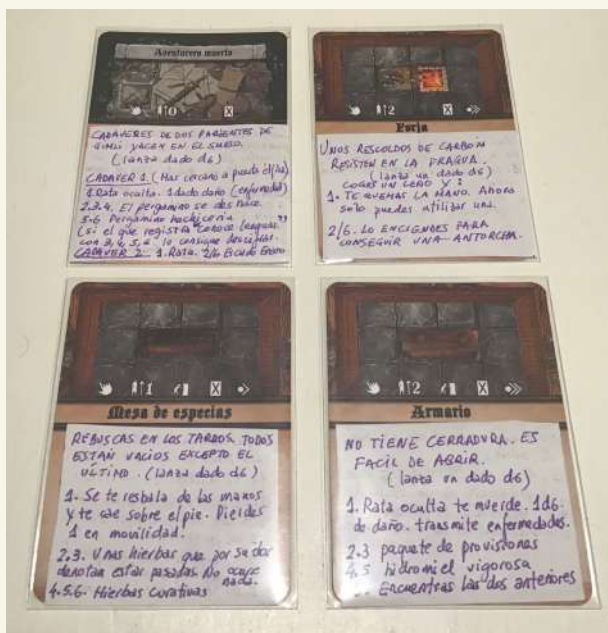 Aventurero muerto
0 X
CADAVERES DE DOS PARIENTES DE
GIMLI YACEN EN EL SUELO.
(lanza dado d6)
CADAVER 1. (Mas cercano a puerta
1. Rata oculta. 1 dado daño (enfermedad)
2.3.4. El pergamino se deshace.
5-6 Pergamino hechiceria
(si el que registra "conoce lenguas"
con 3, 4, 5, 6 lo consigue descifrar.
CADAVER 2. 1. Rata. 2/6 Escudo Enano
2 X
Forja
UNOS RESCOLDOS DE CARBON
RESISTEN EN LA FRAGUA.
(lanza un dado d6)
COGES UN LEÑO Y:
1. TE QUEMAS LA MANO. AHORA
solo puedes utilizar una.
2/6. LO ENCIENDES PARA
CONSEGUIR UNA ANTORCHA.
1 X
Mesa de especias
REBUSCAS EN LOS TARROS. TODOS
ESTAN VACIOS EXCEPTO EL
ÚLTIMO. (lanza dado d6)
1. Se te resbala de las manos
y te cae sobre el pie. Pierdes
1 en movilidad.
2.3. Unas hierbas que por su olor
denotan estar pasadas. No ocurre
nada.
4.5.6. Hierbas curativas
2 X
Armario
NO TIENE CERRADURA. ES
FACIL DE ABRIR.
(lanza un dado d6)
1. Rata oculta te muerde. 1d6
de daño. transmite enfermedades.
2.3 paquete de provisiones
4.5 hidromiel vigorosa
ENCUENTRAS LAS DOS ANTERIORES